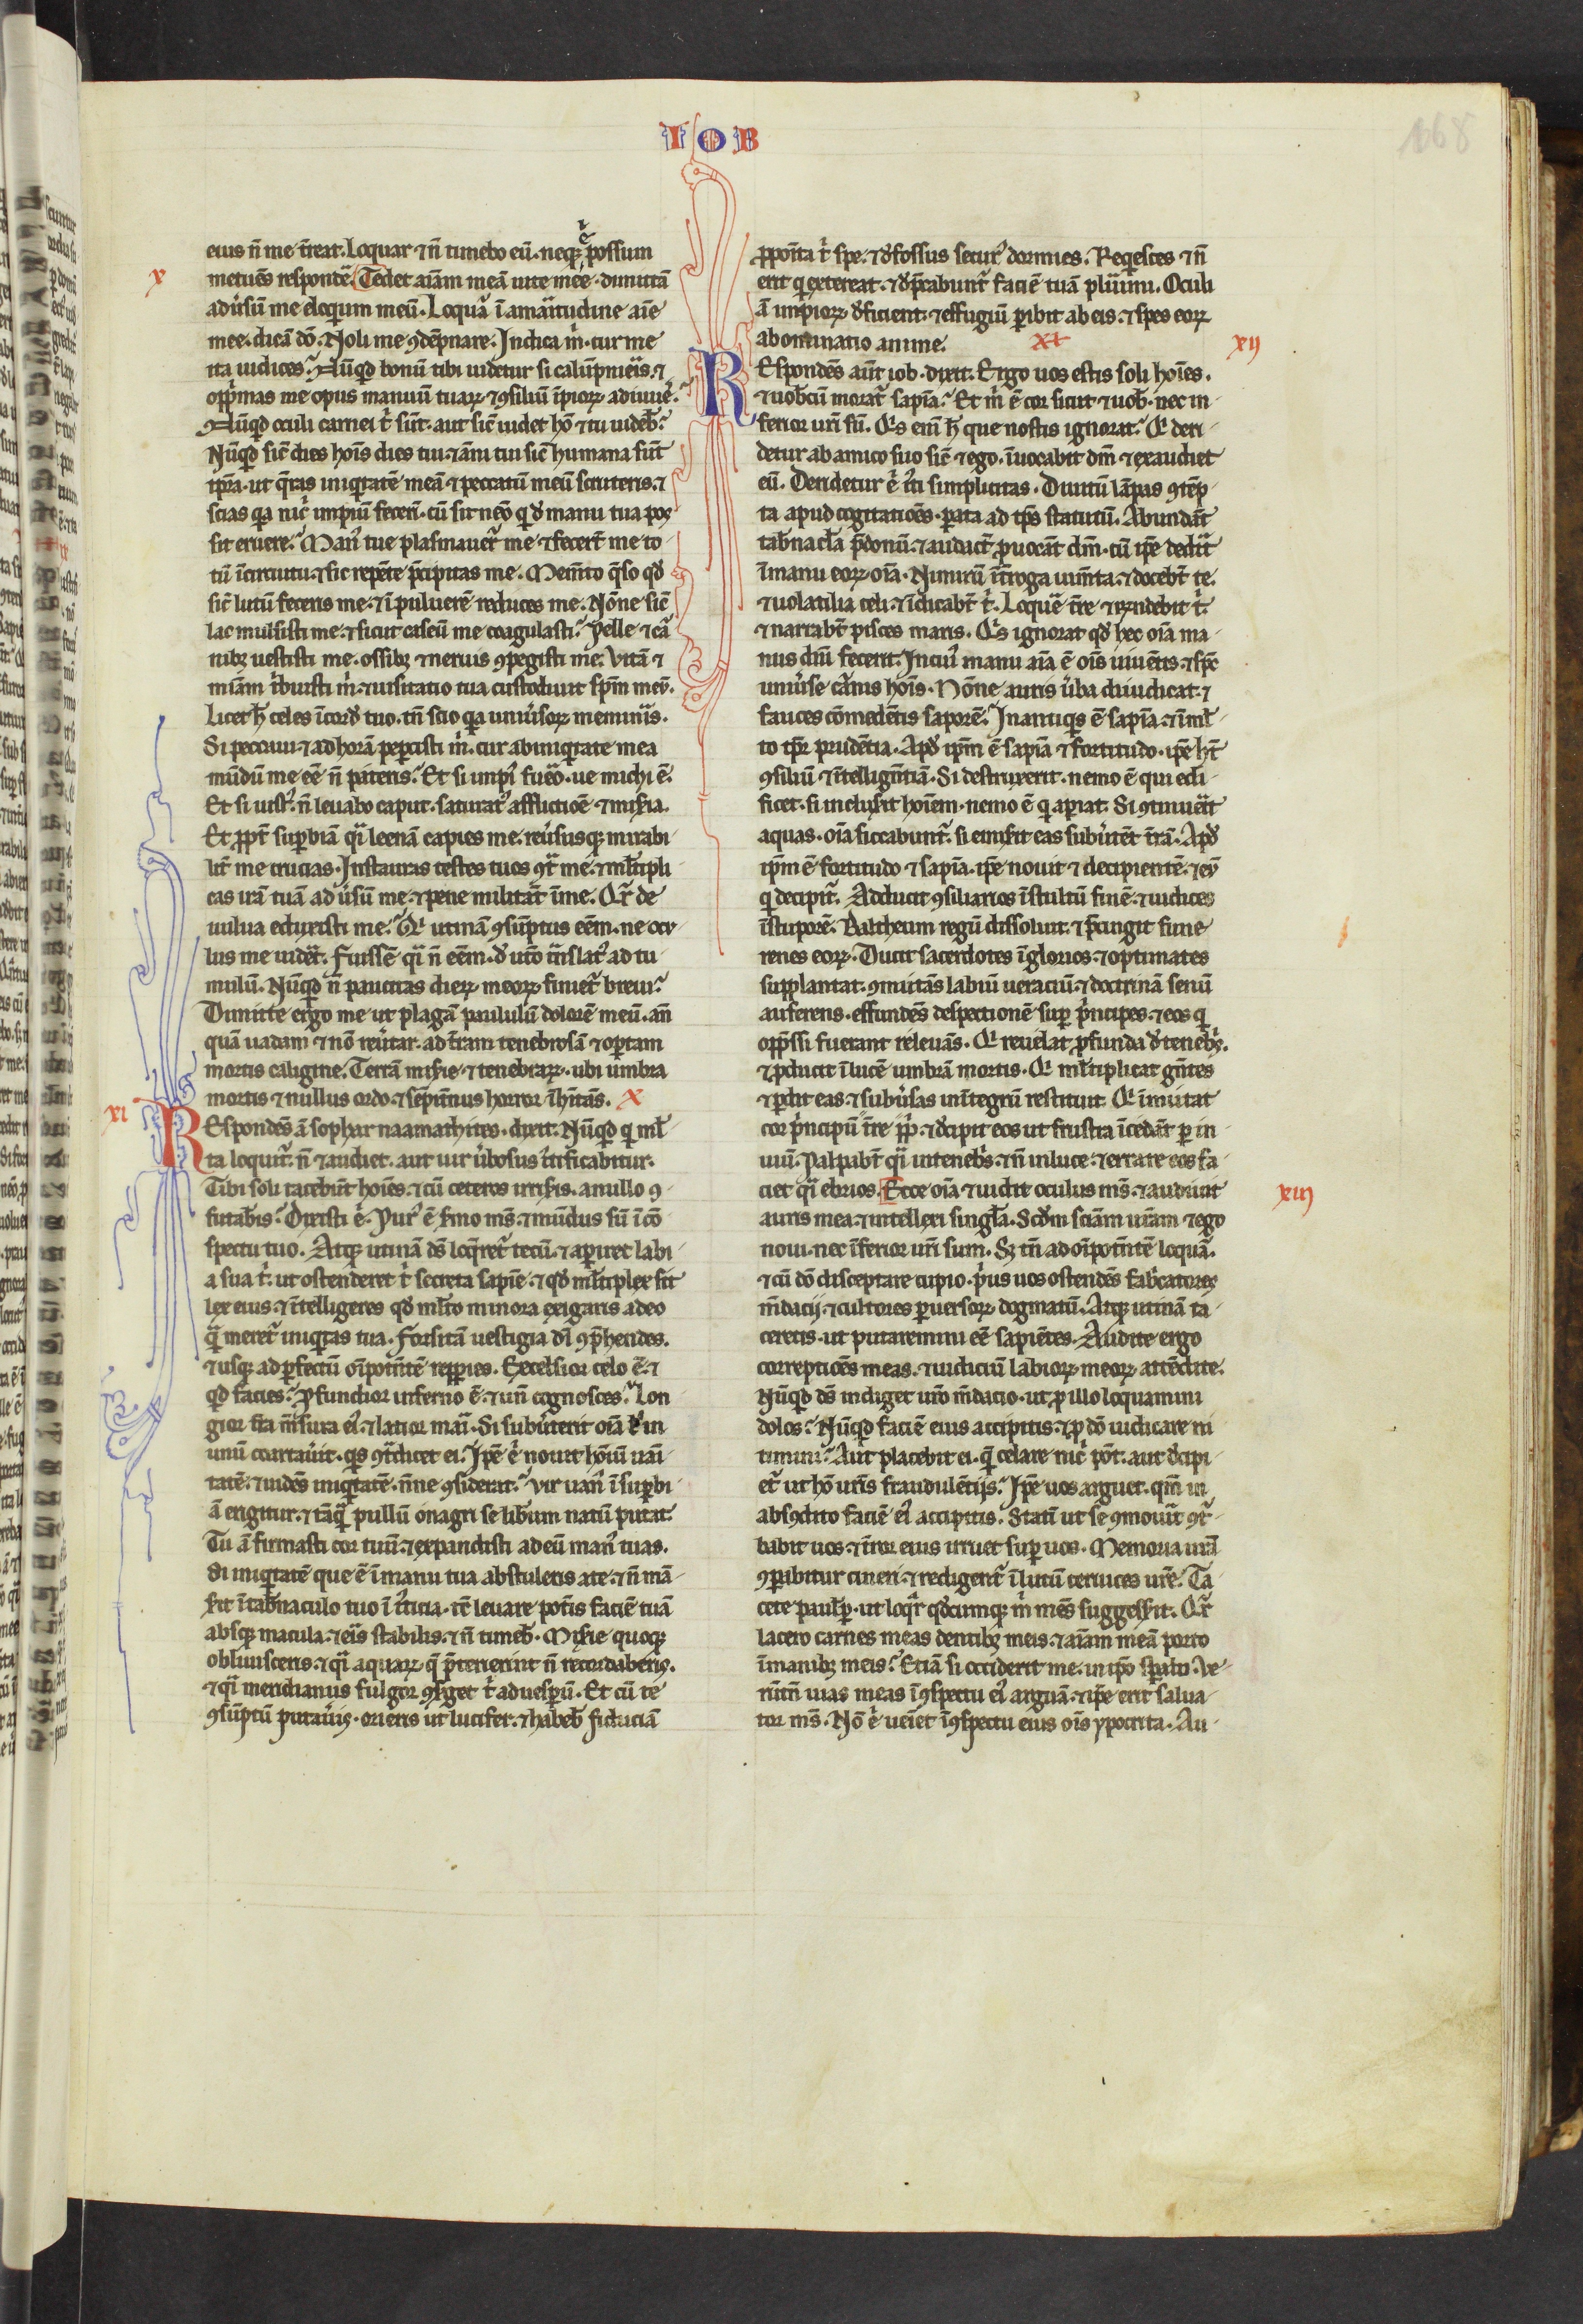 IOB
168
eius n̄ me t̄reat. Loquar ⁊ n̄ timebo eū. neqꝫ eī possum
x
metuēs respondē. Tedet aīam meā uite mee. dimittā
adūsū me eloqium meū. Loquar ī amaritudine aīe
mee. dicā dō. Noli me ꝯdēpnare. Indica m̄. cur me
ita iudices? Nūqd bonū tibi uidetur si calūpnieris. ⁊
opp̄mas me opus manuū tuarꝝ ⁊ ꝯsiliū īpiorꝝ adiuues?
Nūqd oculi carnei t̄ sūt. aut sic̄ uidet hō ⁊ tu uideb̄?
Nūqd sic̄ dies hōis dies tui. ⁊ anni tui sic̄ humana sūt
tp̄a. ut q̄ras iniqtatē meā ⁊ peccatū meū scruteris. ⁊
scias qa nic̄ impiū fecerī. cū sit nēo q de manu tua pos
sit eruere? Manꝰ tue plasmauer̄t me ⁊ fecert̄ me to
tū īcircuitu. ⁊ sic repēte p̄cipitas me. Memēto q̄so qd
sic̄ lutū feceris me. ⁊ ī puluerē reduces me. Nōne sic̄
lac mulsisti me. ⁊ sicut caseū me coagulasti? Pelle ⁊ car
nibꝫ uestisti me. ossibꝫ ⁊ neruis ꝯpegisti me. Vitā ⁊
miam t̄buisti m̄. ⁊ uisitatio tua custodiuit sp̄m meū.
Licet h̄ celes ī corde tuo. tn̄ scio qa uniūsorꝝ memineris.
Si peccaui. ⁊ ad horā pepcisti m̄. cur ab iniqtate mea
mūdū me eē n̄ pateris? Et si impiꝰ fuero. ue michi ē.
Et si iustꝰ. n̄ leuabo caput. saturatꝰ afflictiōe ⁊ mis̄ia.
Et ꝓpt̄ supbiā qī leenā capies me. reūsusqꝫ mirabi
lit̄ me crucias. Instauras testes tuos ꝯtra me. ⁊ ml̄tipli
cas irā tuā adūsū me. ⁊ pene militāt ī me. Qr̄ de
uulua eduxisti me? Qi utinā ꝯsūptus eēm. ne ocu
lus me uidēt. Fuissē qi n̄ eēm. de utō t̄nslatꝰ ad tu
mulū. Nūqd n̄ paucitas dierꝝ meorꝝ finiet̄ breui?
Dimitte ergo me ut plagā paululū dolorē meū. an̄
quā uadam ⁊ nō reūtar. ad t̄ram tenebrosā ⁊ optam
mortis caligine. Terrā mis̄ie ⁊ tenebrarꝝ. ubi umbra
mortis ⁊ nullus ordo. ⁊ sēpit̄nus horror īhitās. X
xi
REspondēs ā sophar naamathites. dixit. Nūqd q ml̄
ta loquit̄. n̄ ⁊ audiet. aut uir ūbosus iustificabitur.
Tibi soli tacebūt hoīes. ⁊ cū ceteros irrisis. a nullo ꝯ
futab̄is. Dixisti ē. Purꝰ ē sermo ms̄. ⁊ mūdus sū ī cō
spectu tuo. Atqꝫ utinā ds̄ loqret̄ tecū. ⁊ apiret labi
a sua t̄. ut ostenderet t̄ secreta sapīe. ⁊ qd ml̄tiplex sit
lex eius. ⁊ ītelligeres qd ml̄to minora exigaris a deo
q̄ meret̄ iniqtas tua. Forsitā uestigia dei ꝯp̄hendes.
⁊ usqꝫ ad pfectū oīpotētē reppies. Excelsior celo ē. ⁊
qd facies? Pfundior inferno ē. ⁊ un̄ cognosces? Lon
gior t̄ra m̄sura eiꝰ. ⁊ latior mari. Si subūterit oīa ł in
unū coartauit. qs ꝯt̄dicet ei? Ip̄e ē nouit hōiū uani
tatē. ⁊ uidēs iniqtatē. n̄ne ꝯsiderat? Vir uanꝰ ī supbi
ā erigitur. ⁊ tāq̄ pullū onagri se lib̄um natū putat.
Tu ā firmasti cor tuū. ⁊ expandisti ad eū manꝰ tuas.
Si iniqtatē que ē ī manu tua abstuleris a te. ⁊ n̄ mā
s̄it ī tab̄naculo tuo ī iusticia. tc̄ leuare potis faciē tuā
absqꝫ macula. ⁊ eis stabilis. ⁊ n̄ timeb̄. Mis̄ie quoqꝫ
obliuisceris. ⁊ qī aquarꝝ q̄ p̄terierint n̄ recordaberis.
⁊ qī meridianus fulgor ꝯsurget t̄ ad uesperū. Et cū te
ꝯsūptū putaueris. orieris ut lucifer. ⁊ habeb̄ fiduciā
ꝓpoīta t̄ spe. ⁊ defossus securꝰ dormies. Reqiesces ⁊ n̄
erit q exterreat. ⁊ dep̄cabunt̄ faciē tuā plurimi. Oculi
ā impiorꝝ deficient. ⁊ effugiū pibit ab eis. ⁊ spes eorꝝ
abominatio anime. XI
xij
REspondēs aūt iob. dixit. Ergo uos estis soli hoīes.
⁊ uobcū morat̄ sapīa? Et m̄ ē cor sicut ⁊ uob̄. nec in
ferior uri sū. Qis enī h̄ que nostis ignorat? Qi deri
detur ab amico suo sic̄ ⁊ ego. īuocabit dm̄ ⁊ exaudiet
eū. Deridetur ē iusti simplicitas. Diuitū lāpas ꝯtēp
ta apud cogitatiōes. pata ad tp̄s statutū. Abundāt
tab̄nacl̄a p̄donū. ⁊ audact̄ ꝓuocāt dm̄. cū ip̄e dedit
ī manu eorꝝ oīa. Nimirū īt̄roga iumēta. ⁊ doceb̄t te.
⁊ uolatilia celi. ⁊ īdicab̄t t̄. Loquē t̄re ⁊ rn̄debit t̄.
⁊ narrab̄t pisces maris. Qis ignorat qd hec oīa ma
nus dn̄i fecerit. In cuiꝰ manu aīa ē oīs uiuētis. ⁊ sp̄c
uniūse carnis hoīs. Nōne auris ūba diiudicat. ⁊
fauces comedētis saporē? In antiqis ē sapīa. ⁊ ī ml̄
to tp̄r prudētia. Apd ip̄m ē sapīa ⁊ fortitudo. ip̄e ht̄
ꝯsiliū ⁊ ītelligētiā. Si destruxerit. nemo ē qui edi
ficet. si incluserit hoīem. nemo ē q apiat. Si ꝯtinuerit
aquas. oīa siccabunt̄. si emiserit eas subūtēt t̄rā. Apd
ip̄m ē fortitudo ⁊ sapīa. ip̄e nouit ⁊ decipientē. ⁊ eū
q decipit̄. Adducit ꝯsiliarios ī stultū finē. ⁊ iudices
ī stuporē. Baltheum regū dissoluit. ⁊ p̄cingit fune
renes eorꝝ. Ducit sacerdotes īglorios. ⁊ optimates
supplantat. ꝯmutās labiū ueraciū. ⁊ doctrinā senū
auferens. effundēs despectionē sup p̄ncipes. ⁊ eos q
opp̄ssi fuerant releuās. Qi reuelat ꝓfunda de tenebris.
⁊ ꝓducit ī lucē umbrā mortis. Qi ml̄tiplicat gn̄tes
⁊ pdit eas. ⁊ subūsas in ītegrū restituit. Qi īmutat
cor p̄ncipū t̄re pp̄li. ⁊ decipit eos ut frustra īcedāt p in
uiū. Palpab̄t qī in tenebris. ⁊ n̄ in luce. ⁊ errare eos fa
xiij
ciet qī ebrios. Ecce oīa ⁊ uidit oculus ms̄. ⁊ audiuit
auris mea. ⁊ intellexi singl̄a. Scdm sciam uram ⁊ ego
noui. nec īferior uri sum. Sꝫ tn̄ ad oīpotētē loquar.
⁊ cū dō disceptare cupio. p̄us uos ostendēs fabricatores
mēdacij. ⁊ cultores puersorꝝ dogmatū. Atqꝫ utinā ta
ceretis. ut putaremini eē sapiētes. Audite ergo
correptiōes meas. ⁊ iudiciū labiorꝝ meorꝝ attēdite.
Nūqd ds̄ indiget uro mēdacio. ut ꝓ illo loquamini
dolos? Nūqd faciē eius accipitis. ⁊ ꝓ dō iudicare ni
timini? Aut placebit ei. q̄ celare nic̄ pōt. aut decipi
et̄ ut hō uris fraudulētijs? Ip̄e uos arguet. qm̄ in
abscōdito faciē eiꝰ accipitis. Statī ut se ꝯmouerit ꝯtur
babit uos. ⁊ t̄ror eius irruet sup uos. Memoria urā
ꝯparibitur cineri. ⁊ redigent̄ ī lutū ceruices ure. Ta
cete paulisp. ut loqr qdcumqꝫ m̄ mēs suggess̄it. Qr̄
lacero carnes meas dentibꝫ meis. ⁊ aīam meā porto
ī manibꝫ meis? Etiā si occiderit me. in ip̄o sperabo. Ve
rūtn̄ uias meas ī ꝯspectu eiꝰ arguā. ⁊ ip̄e erit salua
tor ms̄. Nō ē ueiet ī ꝯspectu eius oīs ypocrita. Au